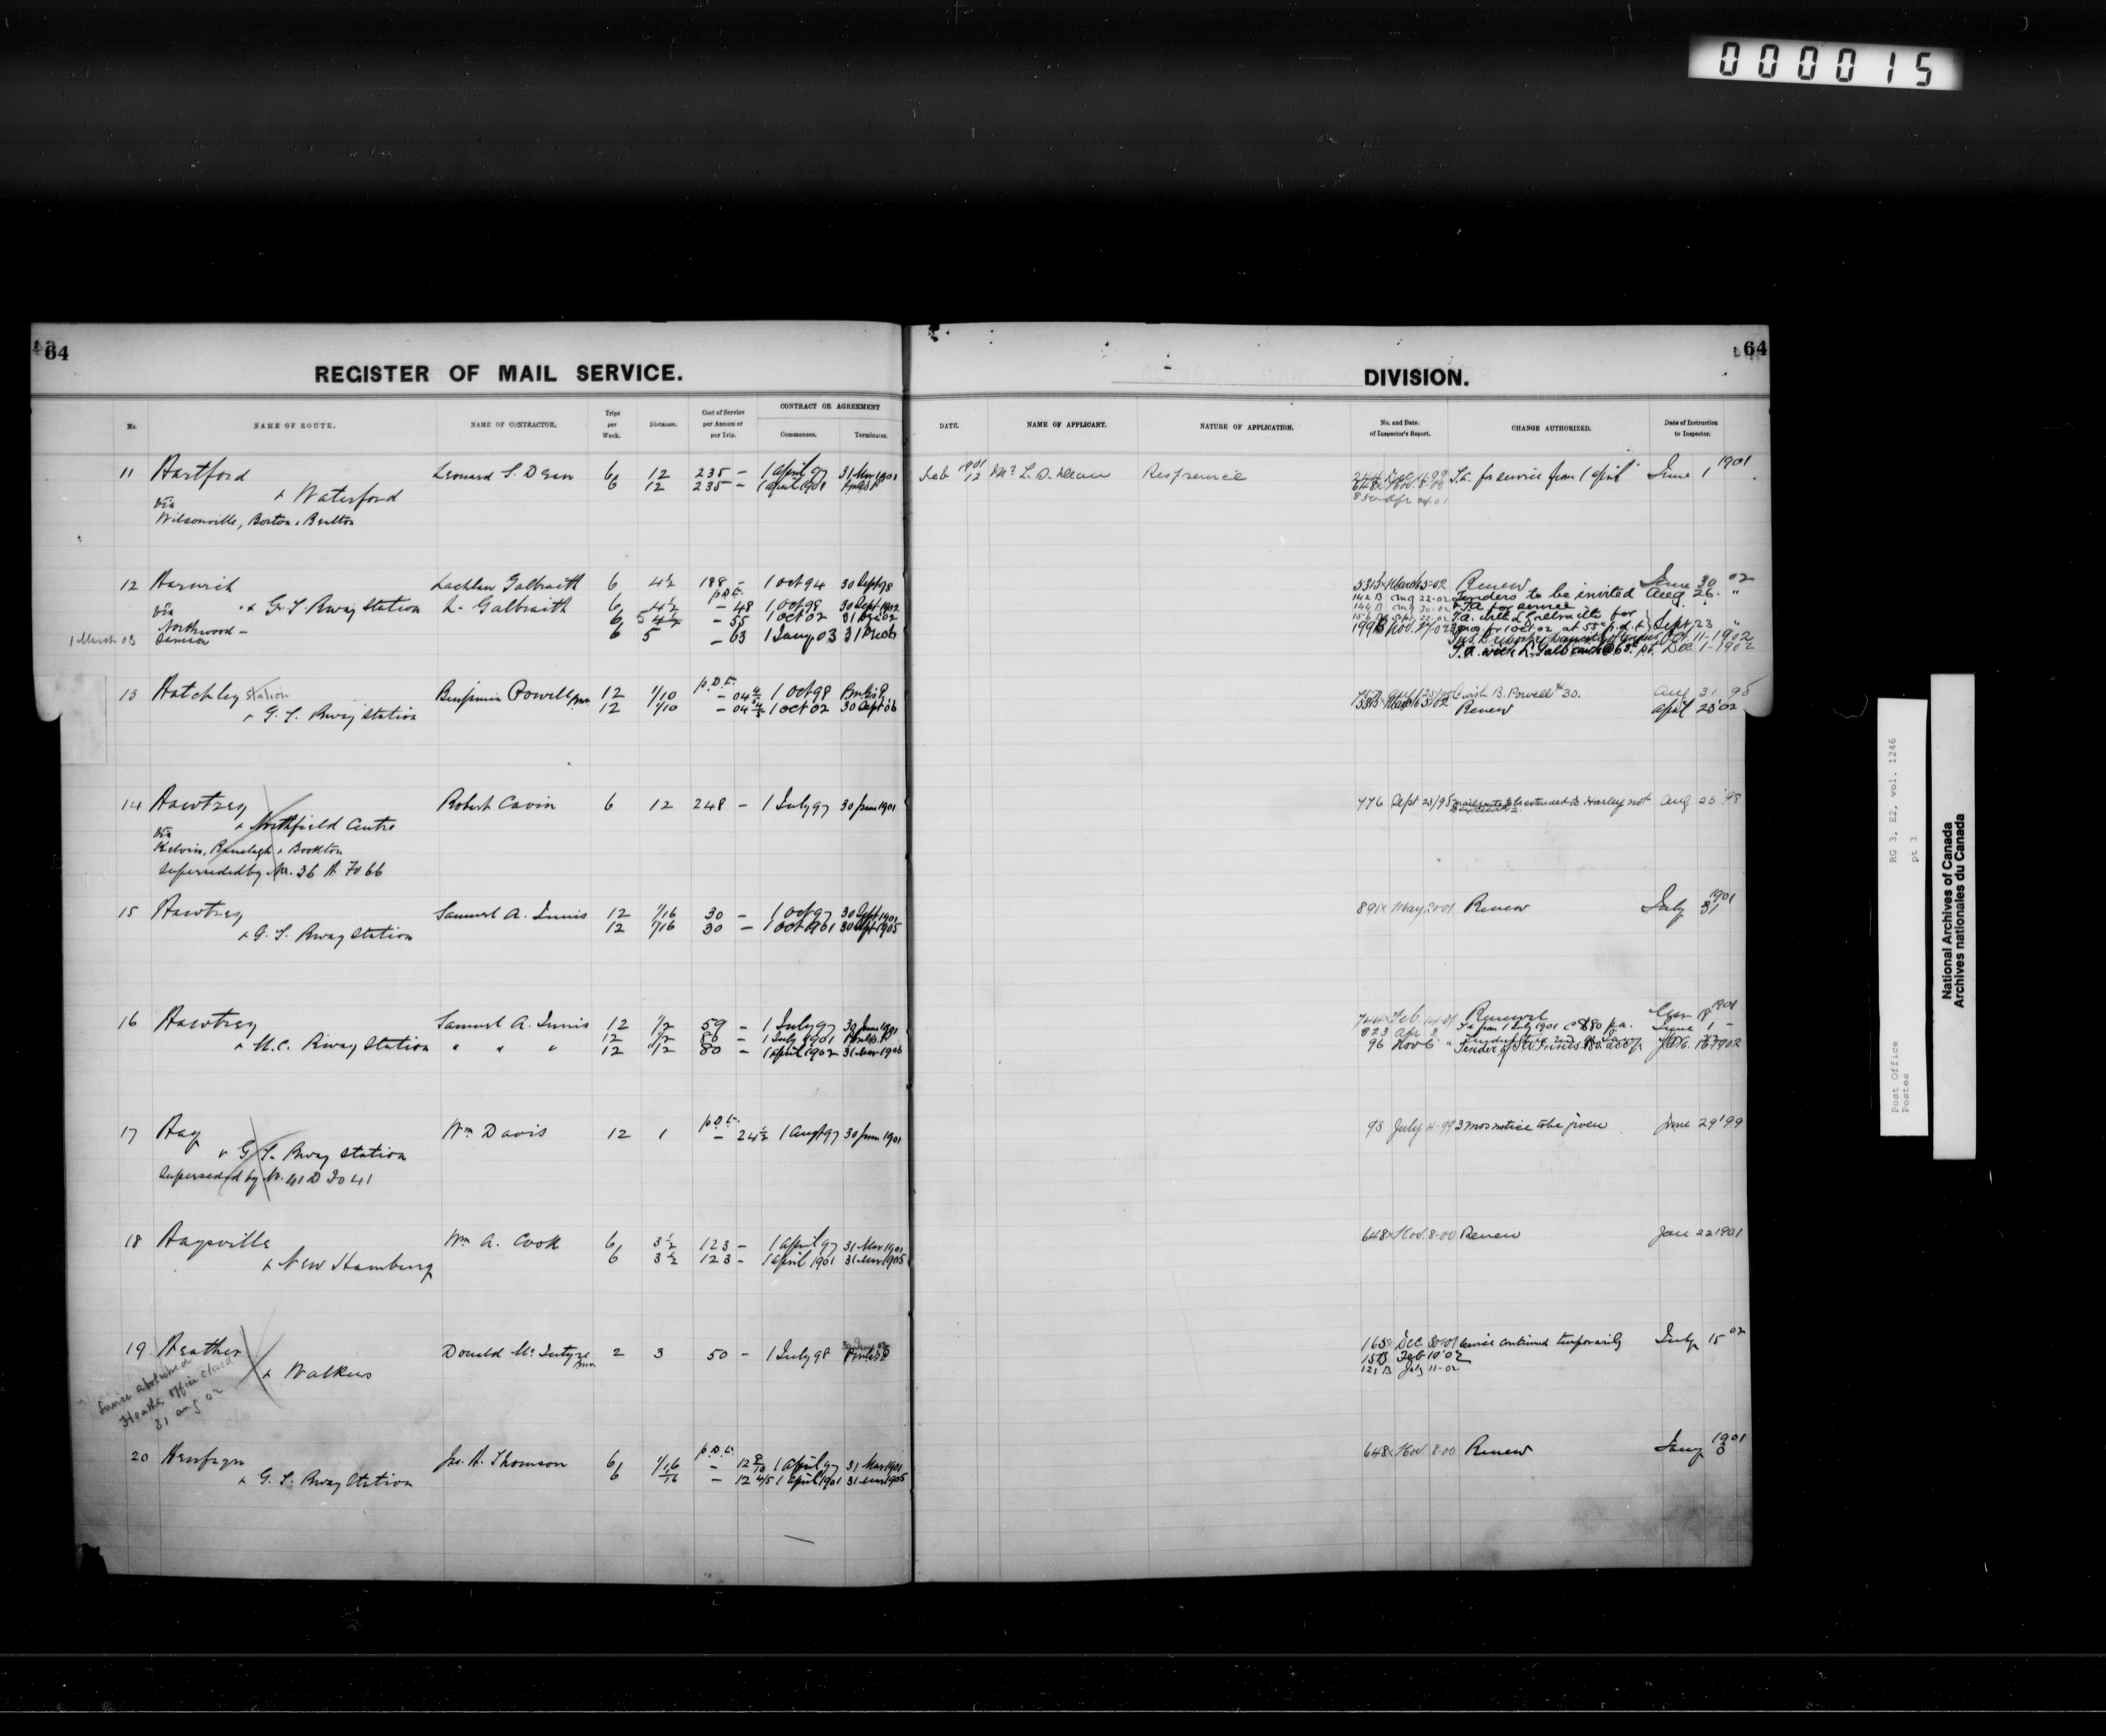 000015
64
REGISTER OF MAIL SERVICE.
No. NAME OF ROUTE. NAME OF CONTRACTOR. Trips per Week. Distance. Cost of Service per Annum or per Trip. CONTRACT OR AGREEMENT Commences. Terminates.
11 Hartford Leonard S. Dean 6 12 235 – 1 April 97 31 Mar 1901
& Waterford 6 12 235 – 1 April 1901
via
Wilsonville, Boston & Bealton
12 Harwich Lachlan Galbraith 6 4½ 188 – 1 Oct 94 30 Sept 98
p.d.t.
& G.T. Rway Station L. Galbraith 6 4½ – 48 1 Oct 98 30 Sept 1902
via 6 – 55 1 Oct 02 31 Dec 02
Northwood –
1 March 03 Samson 6 5 – 63 1 Jany 03 31 Dec 06
13 Hatchley Station Benjamin Powell 12 1/10 p.d.t. – 04 4/5 1 Oct 98
& G.T. Rway Station 12 1/10 – 04 4/5 1 Oct 02 30 Sept 06
14 Hawtrey Robert Cavin 6 12 248 – 1 July 97 30 June 1901
& Northfield Centre
via
Kelvin, Ranelagh & Bookton
Superseded by No. 36 A Fo 66
15 Hawtrey Samuel A. Innis 12 1/16 30 – 1 Oct 97 30 Sept 1901
& G.T. Rway Station 12 1/16 30 – 1 Oct 1901 30 Sept 1905
16 Hawtrey Samuel A. Innis 12 1/2 59 – 1 July 97 30 June 1901
12 1/2 80 – 1 July 1901
& M.C. Rway Station " " " 12 1/2 80 – 1 April 1902 31 Mar 1906
17 Hay Wm Davis 12 1 p.d.t. – 24½ 1 Aug 97 30 June 1901
& G.T. Rway Station
Superseded by No. 41 D Fo 41
18 Haysville Wm A. Cook 6 3½ 123 – 1 April 97 31 Mar 1901
& New Hamburg 6 3½ 123 – 1 April 1901 31 Mar 1905
19 Heather Donald McIntyre 2 3 50 – 1 July 98
& Walkers
Service abolished
Heather office closed
31 Aug 02
20 Hensfryn Jas. A. Thomson 6 1/16 p.d.t. – 12 8/10 1 April 97 31 Mar 1901
& G.T. Rway Station 6 1/16 – 12 4/5 1 April 1901 31 Mar 1905
64
DIVISION.
DATE. NAME OF APPLICANT. NATURE OF APPLICATION. No. and Date. of Inspector's Report. CHANGE AUTHORIZED. Date of Instruction to Inspector.
1901
Feb 12 Mr L. S. Dean Resp service T.A. for service from 1 April June 1 1901
850 Apr 24 01
March 5-02 Renew June 30 02
142 B Aug 22-02 Tenders to be invited Aug 26 "
144 B Aug 30-02 T.A. for service
T.A. with L Galbraith for
from 1 Oct 02 at 55c p.d.t. Sept 23 "
Oct. 11-1902
T.A. with L. Galbraith @ 63c pt. Dec 1-1902
with B. Powell $30. Aug 31 98
Renew April 23 02
776 Sept 23/98 to be extended to Harley not Aug 25 98
891 May 20-01 Renew July 31 1901
744 Feb 14-01 Renewal 1901
823 Apr 3 T.A. from 1 July 1901 @ $80 p.a. June 1 –
96 Nov 6 Tender of 1902
93 July 11-99 3 mos notice to be given June 29 '99
648 Nov. 8-00 Renew Jan 22 1901
165 Dec 30-01 Service continued temporarily July 15 02
15 B Feb 10 02
121 B July 11-02
648 Nov. 8-00 Renew Jany 1901
RG 3, E2, vol. 1246
pt 3
Post Office
Postes
National Archives of Canada
Archives nationales du Canada